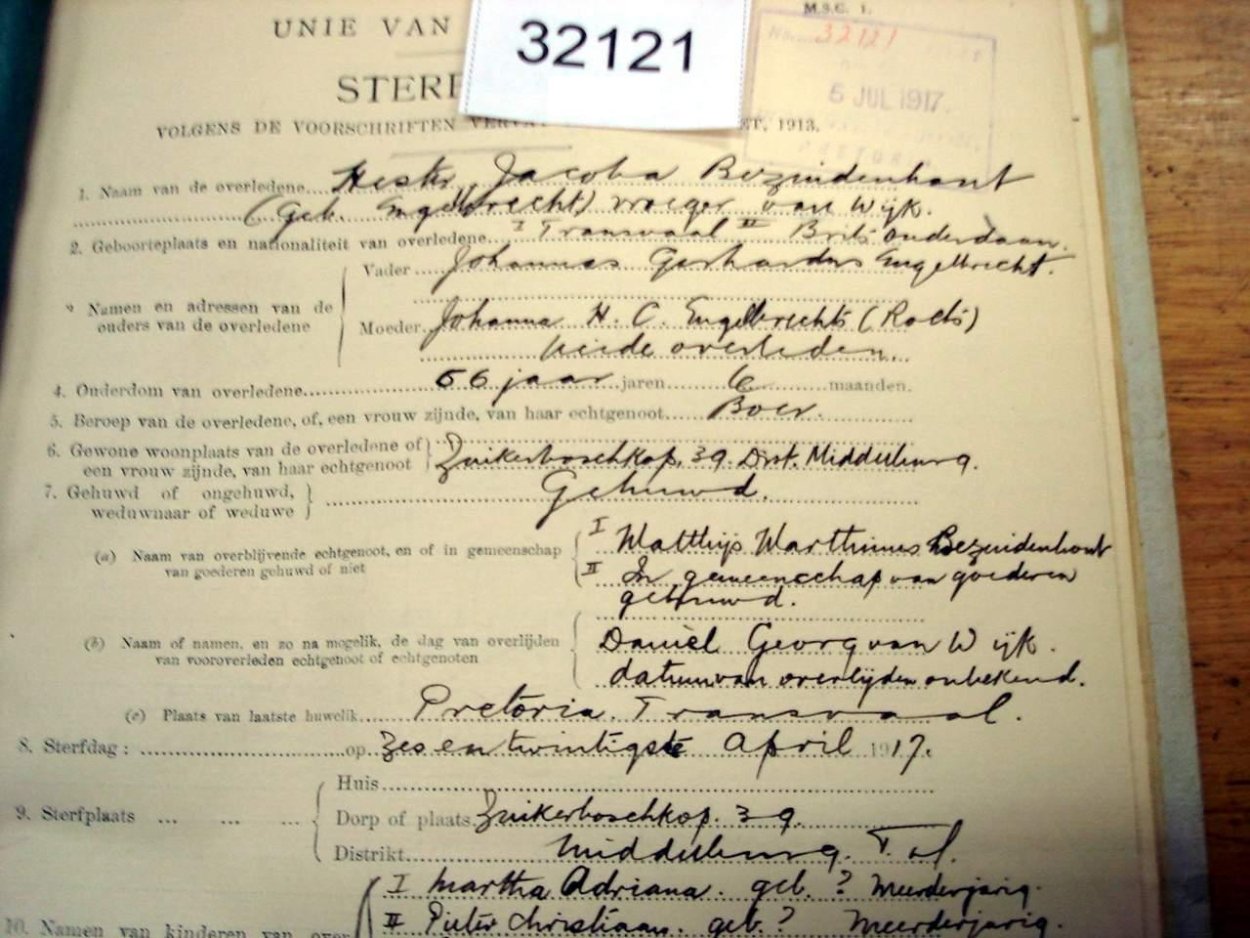 M.S.C. 1.
UNIE VAN
32121
No. 32121
STERF
6 JUL 1917
VOLGENS DE VOORSCHRIFTEN VERVA ET, 1913.
1. Naam van de overledene Hester Jacoba Bezuidenhout
(Geb. Engelbrecht) vroeger van Wijk.
2. Geboorteplaats en nationaliteit van overledene I Transvaal II Brits onderdaan.
Vader Johannes Gerhardus Engelbrecht.
Namen en adressen van de
ouders van de overledene
Moeder Johanna H. C. Engelbrecht (Roets)
beide overleden.
4. Ouderdom van overledene 66 jaar jaren 6 maanden.
5. Beroep van de overledene, of, een vrouw zijnde, van haar echtgenoot Boer.
6. Gewone woonplaats van de overledene of
een vrouw zijnde, van haar echtgenoot Zuikerboschkop. 39. Dist. Middelburg.
7. Gehuwd of ongehuwd,
weduwnaar of weduwe Gehuwd.
(a) Naam van overblijvende echtgenoot, en of in gemeenschap
van goederen gehuwd of niet
I Matthijs Marthinus Bezuidenhout
II In gemeenschap van goederen
gehuwd.
(b) Naam of namen, en zo na mogelik, de dag van overlijden
van vooroverleden echtgenoot of echtgenoten
Daniel Georg van Wijk.
datum van overlyden onbekend.
(c) Plaats van laatste huwelik Pretoria. Transvaal.
8. Sterfdag: op zes en twintigste April 1917.
Huis
9. Sterfplaats ... ... ... Dorp of plaats Zuikerboschkop. 39.
Distrikt Middelburg. T.vl.
I Martha Adriana. geb. ? Meerderjarig.
II Pieter Christiaan. geb. ? Meerderjarig.
10. Namen van kinderen van over